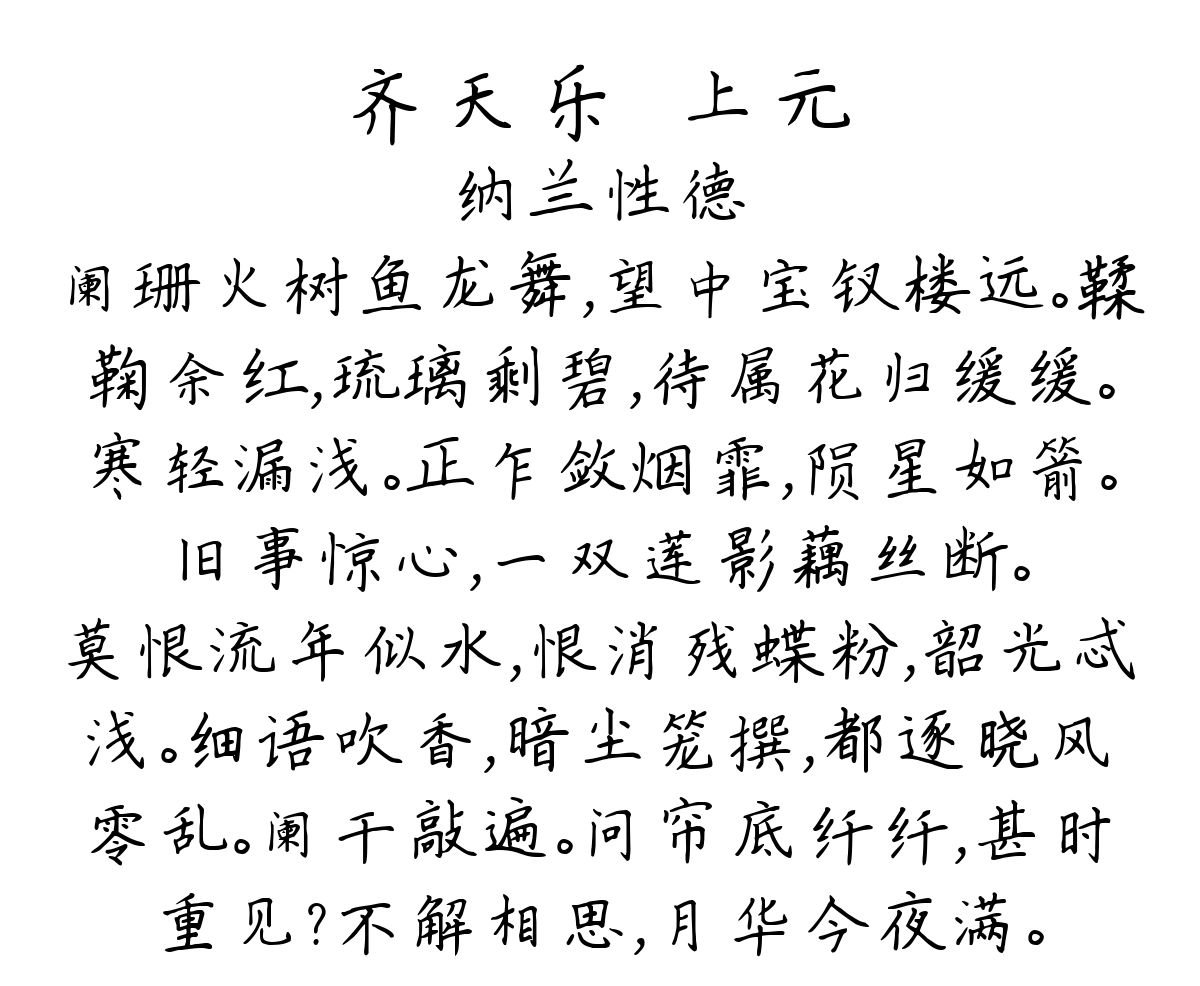 齐天乐 上元
纳兰性德
阑珊火树鱼龙舞,望中宝钗楼远。鞣
鞠余红,琉璃剩碧,待属花归缓缓。
寒轻漏浅。正乍敛烟霏,陨星如箭。
旧事惊心,一双莲影藕丝断。
莫恨流年似水,恨消残蝶粉,韶光忒
浅。细语吹香,暗尘笼撰,都逐晓风
零乱。阑干敲遍。问帘底纤纤,甚时
重见?不解相思,月华今夜满。